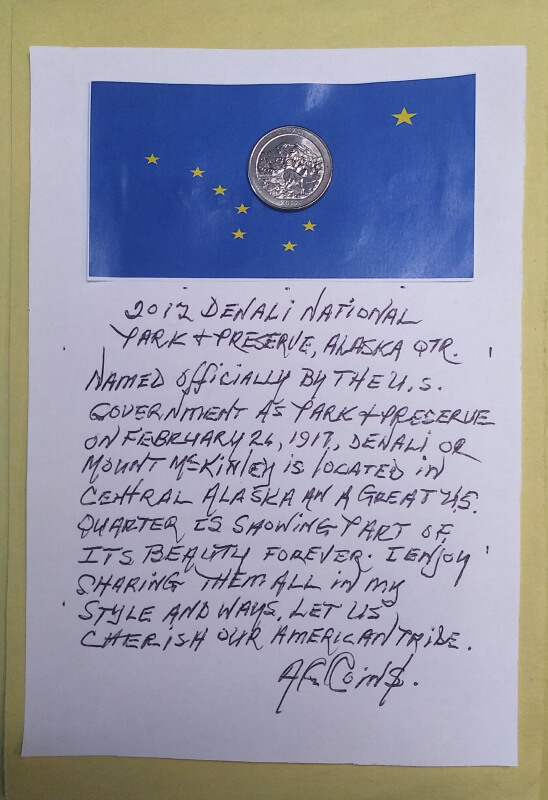 DENALI
2012
2012 DENALI NATIONAL
PARK & PRESERVE, ALASKA QTR.
NAMED OFFICIALLY BY THE U.S.
GOVERNMENT AS PARK & PRESERVE
ON FEBRUARY 26, 1917, DENALI OR
MOUNT McKINLEY IS LOCATED IN
CENTRAL ALASKA AN A GREAT U.S.
QUARTER IS SHOWING PART OF
ITS BEAUTY FOREVER. I ENJOY
SHARING THEM ALL IN MY
STYLE AND WAYS. LET US
CHERISH OUR AMERICAN TRIBE.
Coin$.